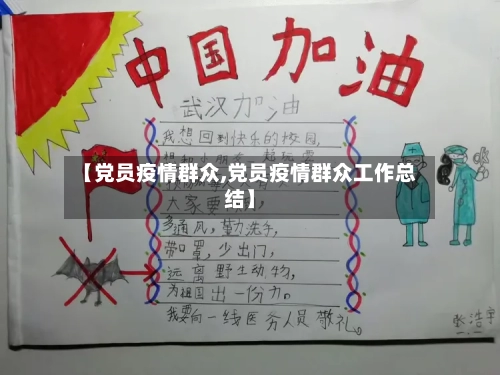 中国加油
武汉加油
我想回到快乐的校园,
【党员疫情群众,党员疫情群众工作总
结】
大家要
多通风,勤洗手,
带口罩,少出门,
远离野生动物,
为祖国出一份力。
我要向一线医务人员敬礼。
张浩宇